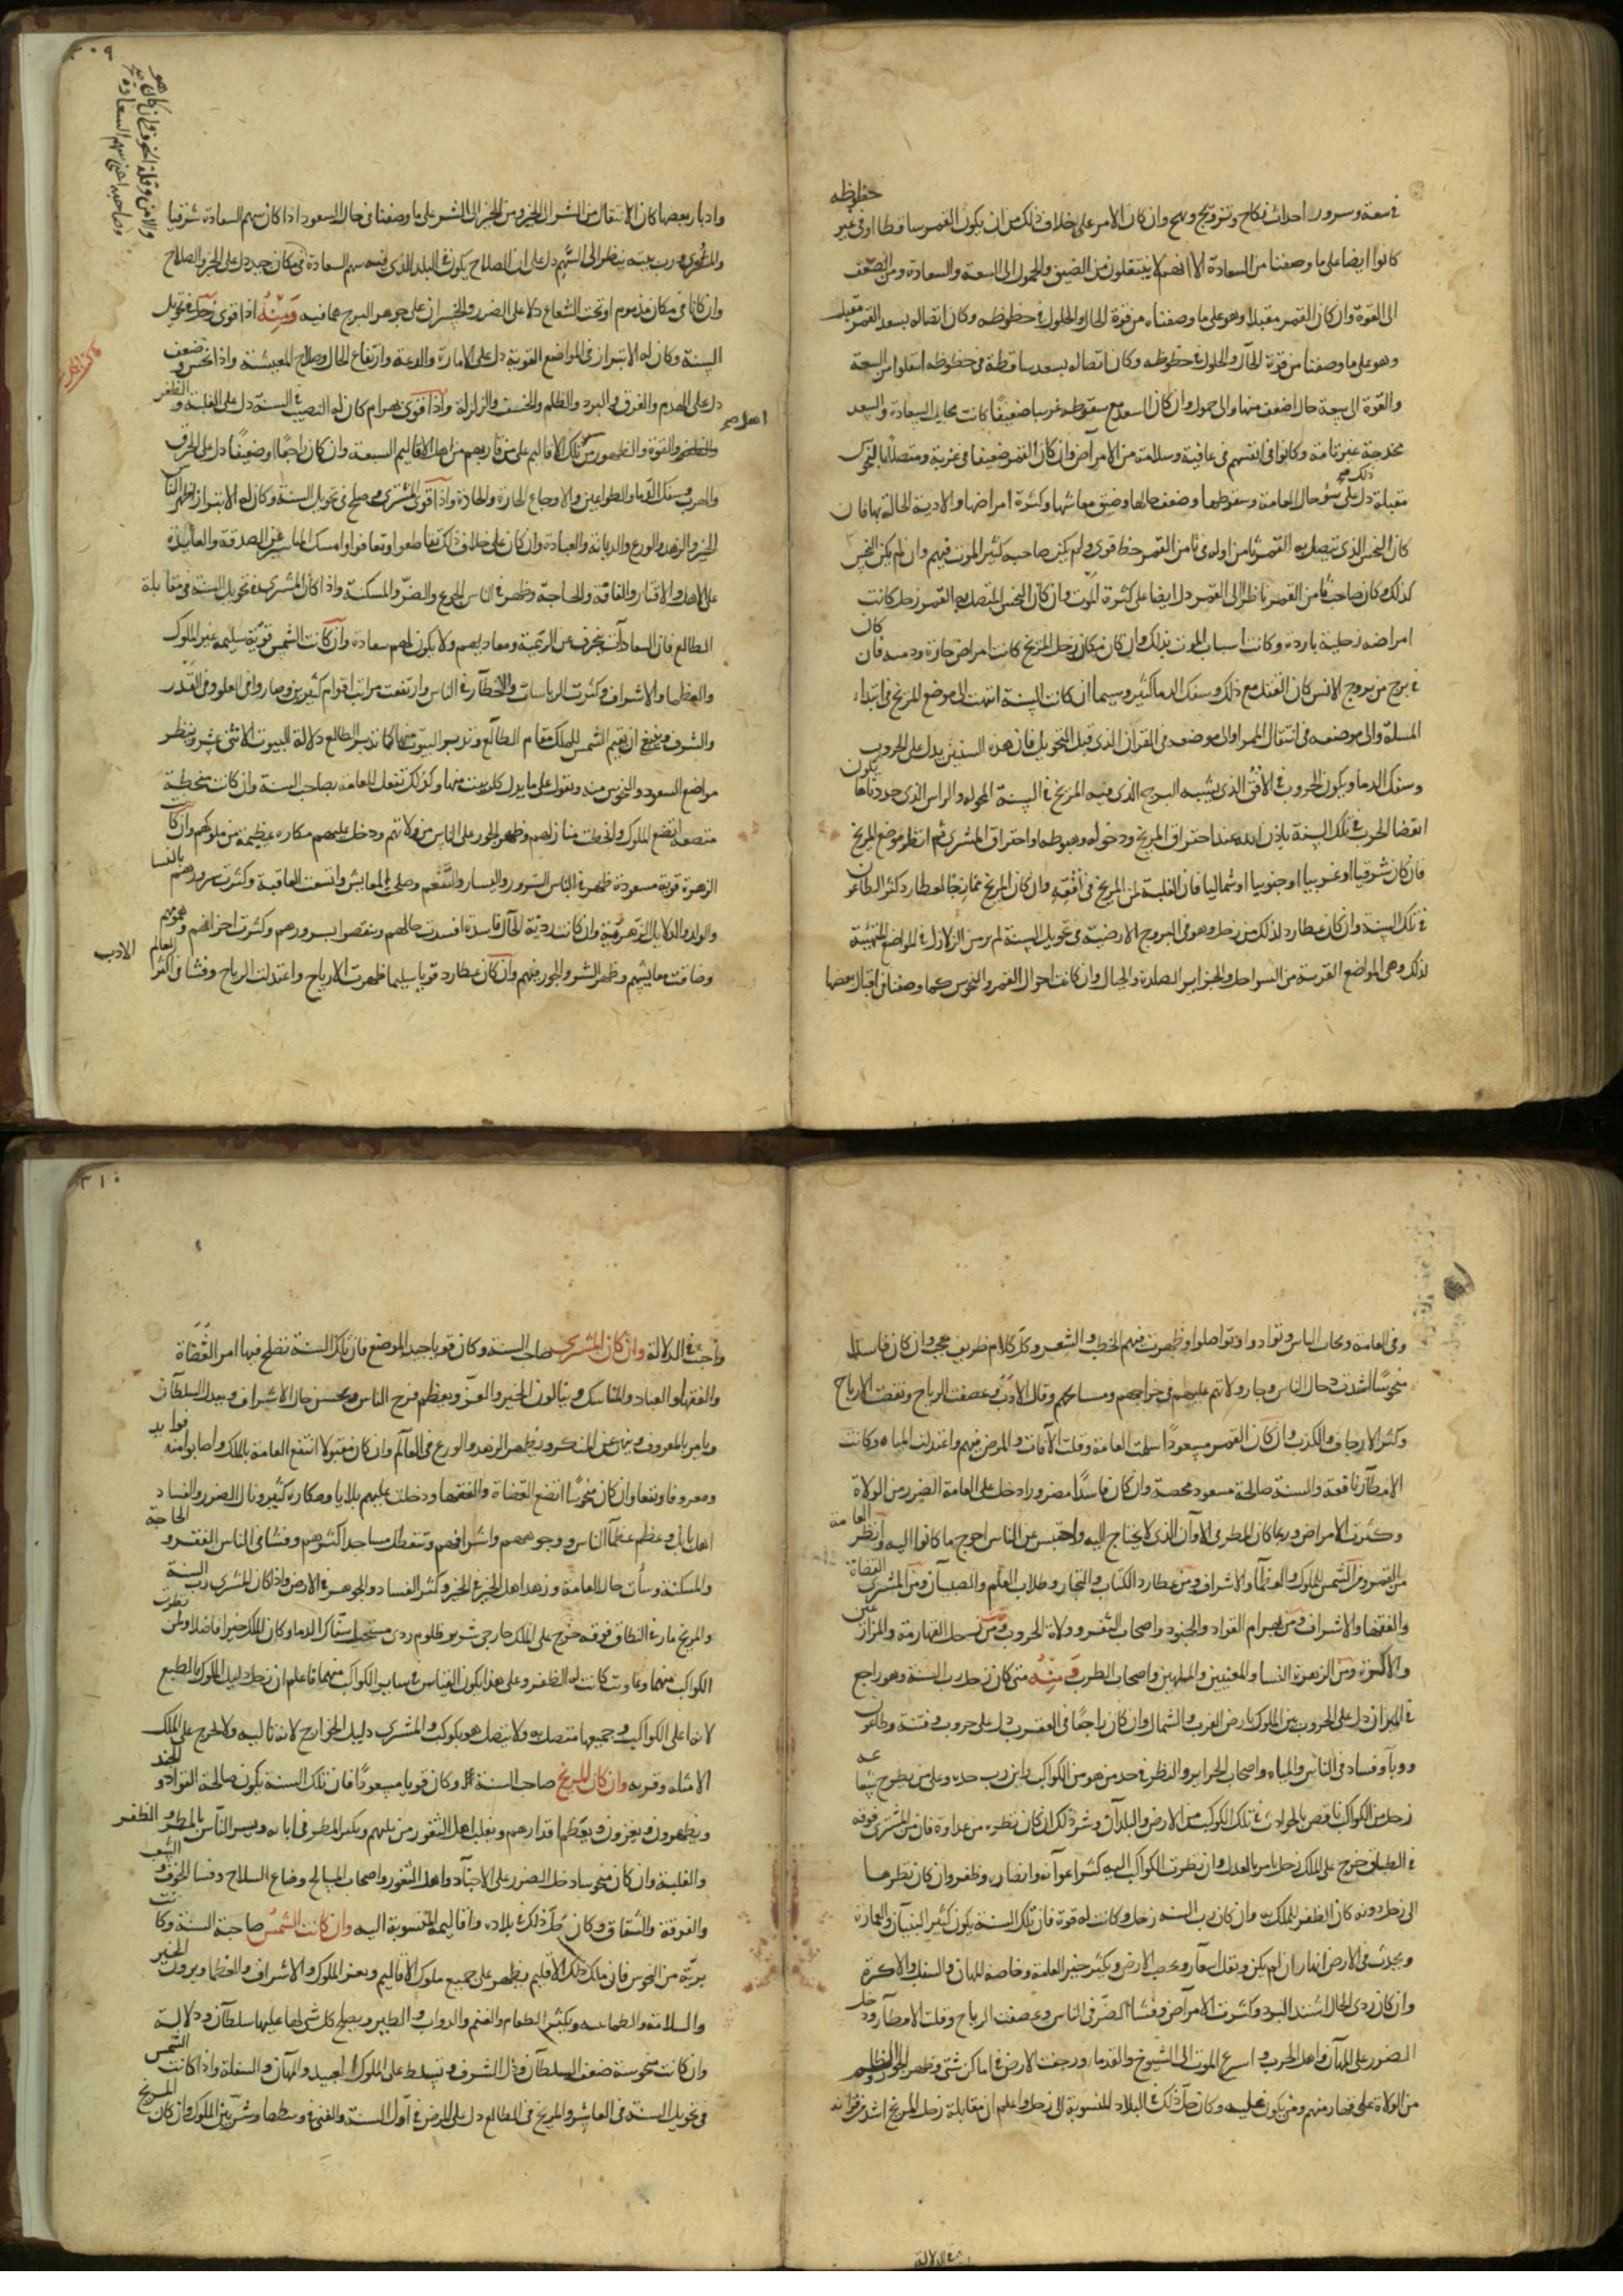 في سعة وسرور احداث نكاح وتزويج وبهج وان كان الامر على خلاف ذلك من ان يكون القمر ساقطا او في غير حظوظه
كانوا ايضا على ما وصفنا من السعادة الا انهم لا ينتقلون من الضيق والخمول الى السعة والسعادة ومن الضعف
الى القوة وان كان القمر مقبلا وهو على ما وصفناه من قوة الحال والحلول في حظوظه وكان اتصاله بسعد القمر مقبله
وهو على ما وصفنا من قوة الحال والحلول في حظوظه وكان اتصاله بسعد ساقطة في حظوظه انتقلوا من السعة
والقوة الى سعة حال اضعف منها والى خمول وان كان السعد مع سقوطه غريبا ضعيفا كانت محايل السعادة والسعد
مخدجة غير تامة وكانوا في انفسهم في عافية وسلامة من الامراض وان كان القمر ضعيفا في غربة ومتصلا بالنحوس
مقبلة دل ذلك على سوء حال العامة وسقوطها وضعف حالها وضيق معاشها وكثرة امراضها والاذية الحالة بها فان
كان النحس الذي يتصل به القمر ثامن اوله في ثامن القمر حظ قوي ولم يكن صاحبه كثير الموت فيهم وان لم يكن النحس
كذلك وكان صاحب ثامن القمر ناظرا الى القمر دل ايضا على كثرة الموت وان كان النحس المتصل به القمر زحل كانت
امراضه زحلية باردة وكانت اسباب الموت بذلك وان كان مكان زحل المريخ كانت امراض حارة ودمية فان كان
في برج من بروج الانس كان القتل مع ذلك وسفك الدما كثير وسيما ان كانت السنة انتهت الى موضع المريخ في ابتداء
الملة والى موضعه في انتقال الممر او الى موضعه في القران الذي قبل التحويل فان هذه السنين يدل على الحروب
وسفك الدما ويكون الحروب في الافق الذي يشبه البرج الذي فيه المريخ في السنة المحوله والراس الذي حددناها يكون
انقضا الحرب في تلك السنة باذن الله عند احتراق المريخ ودخوله وهبوطه او احتراق المشتري ثم انظر موضع المريخ
فان كان شرقيا او غربيا او جنوبيا او شماليا فان الغلبة لمن المريخ في افقه وان كان المريخ ممازجا لعطارد كثر الطاعون
في تلك السنة وان كان عطارد لذلك من زحل وهو في البروج الارضية في تحويل السنة لم يرس الزلازل في المواضع المتهيئة
لذلك وهي المواضع القريبة من السواحل والجزاير الصلدة والجبال وان كانت احوال القمر والنحوس كما وصفنا في اقبال بعضها
٣٠٩
والامن وقلة الخوف وان كان هو
وصاحبه اعني سهم السعادة
وادبار بعضها كان الانتقال من الشر الى الخير ومن الخير الى الشر على ما وصفنا في حال السعود اذا كان سهم السعادة شرقيا
والمشتري ورب بيته ينظر الى السهم دل على ان الصلاح يكون في البلد الذي فيه سهم السعادة في مكان جيد دل على الخير والصلاح
وان كانا في مكان مذموم او تحت الشعاع دلا على الضرر والخسران على جوهر البرج هما فيه ومنه اذا قوى زحل في تحويل
السنة وكان له الابتزاز في المواضع القوية دل على الامارة والدعة وارتفاع الحال وصلاح المعيشة واذا نحس وضعف
دل على الهدم والغرق والبرد والظلم والخسف والزلزلة واذا قوى بهرام كان له النصيب في السنة دل على الغلبة والظفر
والقوة والظهور من تلك الاقاليم على من قاربهم من اهل الاقاليم السبعة وان كان راجعا او ضعيفا دل على الحرق
والهرب وسفك الدما والطواعين والاوجاع الحارة والحادة واذا قوى المشتري وصلح في تحويل السنة وكان له الابتزاز اظهر الناس
الخير والزهد والورع والديانة والعبادة وان كان على خلاف ذلك تقاطعوا وتعافوا وامسك المياسير عن الصدقة والعايدة
على الاهل والاقتار والفاقة والحاجة وظهر في الناس الجوع والضر والمسكنة واذا كان المشتري في تحويل السنة في مقابلة
الطالع فان السعادات ينحرف عن الرعية ومعاديهم ولا يكون لهم سعادة وان كانت الشمس قوية سليمة عبر الملوك
والعظما والاشراف وكثرت الرياسات والاخطار في الناس وارتفعت مراتب اقوام كثيرين وصاروا في العلو وفي القدر
والشرف وينبغي ان تقيم الشمس للملك مقام الطالع وتدير البيوت منها كما تدير الطالع دلالة البيوت الاثنى عشر وينظر
مواضع السعود والنحوس منه وتقول على ما يدل كل بيت منها وكذلك تفعل للعامة بصاحب السنة وان كانت منحطة
متضعة اتضع الملوك وانحطت منازلهم وظهر الجور على الناس من ولاتهم ودخل عليهم مكاره عظيمة من ملوكهم وان كانت
الزهرة قوية مسعودة ظهر في الناس السرور واليسار والتنعم وصلح المعايش واتسعت العاقبة وكثرت سرورهم بالنسا
والولد والدلايل الزهرية وان كانت ردية الحال فاسدة افسدت حالهم ونقصوا بسرورهم وكثرت احزانهم وهمومهم
وضاقت معايشهم وظهر الشر والجور فيهم وان كان عطارد قويا سليما ظهرت الارباح واعتدلت الرياح وفشا في اكثر العالم الادب
وفي العامة وتحاب الناس وتوادوا وتواصلوا وظهرت فيهم الخطب والشعر وكل كلام ظريف معجب وان كان فاسدا
منحوسا اشتدت حال الناس وجار ولاتهم عليهم في خراجهم ومسايحهم وقل الادب وعصفت الرياح ونقصت الارباح
وكثر الارجاف والكذب وان كان القمر مسعودا سلمت العامة وقلت الآفات والمرض فيهم واعتدلت المياه وكانت
الامطار نافعة والسنة صالحة مسعود مخصة وان كان فاسدا مضرورا دخل على العامة الضرر من الولاة
وكثرت الامراض وربما كان المطر في الاوان الذي لا يحتاج اليه واحتبس عن الناس احوج ما كانوا اليه وانظر العامة
من القمر ومن الشمس الملوك والعظما والاشراف ومن عطارد الكتاب والتجار وطلاب العلم والصبيان ومن المشتري القضاة
والفقها والاشراف ومن بهرام القواد والجنود واصحاب الثغور وولاة الحروب ومن زحل القهارمة والمزارعين
والاكرة ومن الزهرة النسا والمغنيين والملهين واصحاب الطرب ومنه متى كان زحل رب السنة وهو راجع
في الميزان دل على الحروب بين الملوك بارض الغرب والشمال وان كان راجعا في العقرب دل على حروب وفتنة وطاعون
ووبا وفساد في الناس والمياه واصحاب الجزاير وانظر في حد من هو من الكواكب واين رب حده وعلى من يطرح شعاعه
زحل من الكواكب فاقض بالحوادث في تلك الكوكب من الارض والبلدان وشر ذلك ان كان نظره من عداوة فان من المشتري فوقه
في الطباق خرج على الملك زحل يامر بالعدل وان نظرت الكواكب اليه كثر اعوانه وانصاره وظفر وان كان نظرها
الى زحل دونه كان الظفر للملك به وان كان رب السنة زحل وكانت له قوة فان تلك السنة يكون كثير البنيان والعمارة
ويحدث في الارض انهار ان لم يكن وتقل اسعار وتخصب الارض ويكثر خير العامة وخاصة المهان والسفلة والاكرة
وان كان ردى الحال اشتد البرد وكثرت الامراض وفشا الضر في الناس وعصفت الرياح وقلت الامطار ودخل
الضرر على المهان واهل الحرب واسرع الموت الى الشيوخ والقدما ورجفت الارض في اماكن شتى وظهر الجور والظلم
من الولاة على قهارمتهم ومن يكون عليه وكان جل ذلك في البلاد المنسوبة الى زحل واعلم ان مقابلة زحل المريخ اشد من قرانه
في الدلالة
٣١٠
واخبث في الدلالة وان كان المشتري صاحب السنة وكان قويا جيد الموضع فان تلك السنة تصلح فيها امر القضاة
والفقها والعباد والمناسك وينالون الخير والعز ويعظم فرح الناس ويحسن حال الاشراف ويعدل السلطان
ويامر بالمعروف وينهى عن المنكر ويظهر الزهد والورع في العالم وان كان مقبولا انتفع العامة بالملك واصابوا منه فوايد
ومعروفا ونفعا وان كان منحوسا اتضع القضاة والفقها ودخلت عليهم بلايا ومكاره كثير ونال الضرر والفساد
اهل بابل وعظم عظما الناس ووجوههم واشرافهم وتتعطل مساجد اكثرهم وفشا في الناس الفقر والحاجة
والمسكنة وسات حال العامة وزهد اهل الخير في الخير وكثر الفساد والجوهر في الارض واذا كان المشتري رب السنة
والمريخ مار في النطاق فوقه خرج على الملك خارجي شرير ظلوم ردى مستحب سفاك الدما وكان الملك خيرا فاضلا ولمن نظرت
الكواكب منهما وعاونت كانت له الظفر وعلى هذا يكون القياس في ساير الكواكب منهما فاعلم ان زحل دليل الملوك بالطبع
لانه اعلى الكواكب وجميعها متصل به ولا يتصل هو بكوكب والمشتري دليل الخوارج لانه تاليه ولا خرج على الملك
الامثله وقربه وان كان المريخ صاحب السنة وكان قويا مسعودا فان تلك السنة يكون صالحة القواد والجند
ويظهرون ويعزون ويعظم اقدارهم ويغلب اهل الثغور من يليهم ويكثر المطر في ابانه ويسر الناس بالمطر والظفر
والغلبة وان كان منحوسا دخل الضرر على الاجناد واهل الثغور واصحاب المسالح وضاع السلاح وفشا الخوف والشعب
والفرقة والشقاق وكان جل ذلك في بلاده واقاليمه المنسوبة اليه وان كانت الشمس صاحبة السنة وكانت
برية من النحوس فان ملك ذلك الاقليم يظهر على جميع ملوك الاقاليم ويعز الملوك والاشراف والعظما ويرون الخير
والسلامة والطمانينه ويكثر الطعام والغنم والدواب والطير ويصلح كل شي لها عليها سلطان ودلالة
وان كانت منحوسة ضعف السلطان وذل الشرف وتسلط على الملوك العبيد والمهان والسفلة واذا كانت الشمس
في تحويل السنة في العاشر والمريخ في الطالع دل على المرض في اول السنة والفتن في وسطها وشر بين الملوك وان كان المريخ